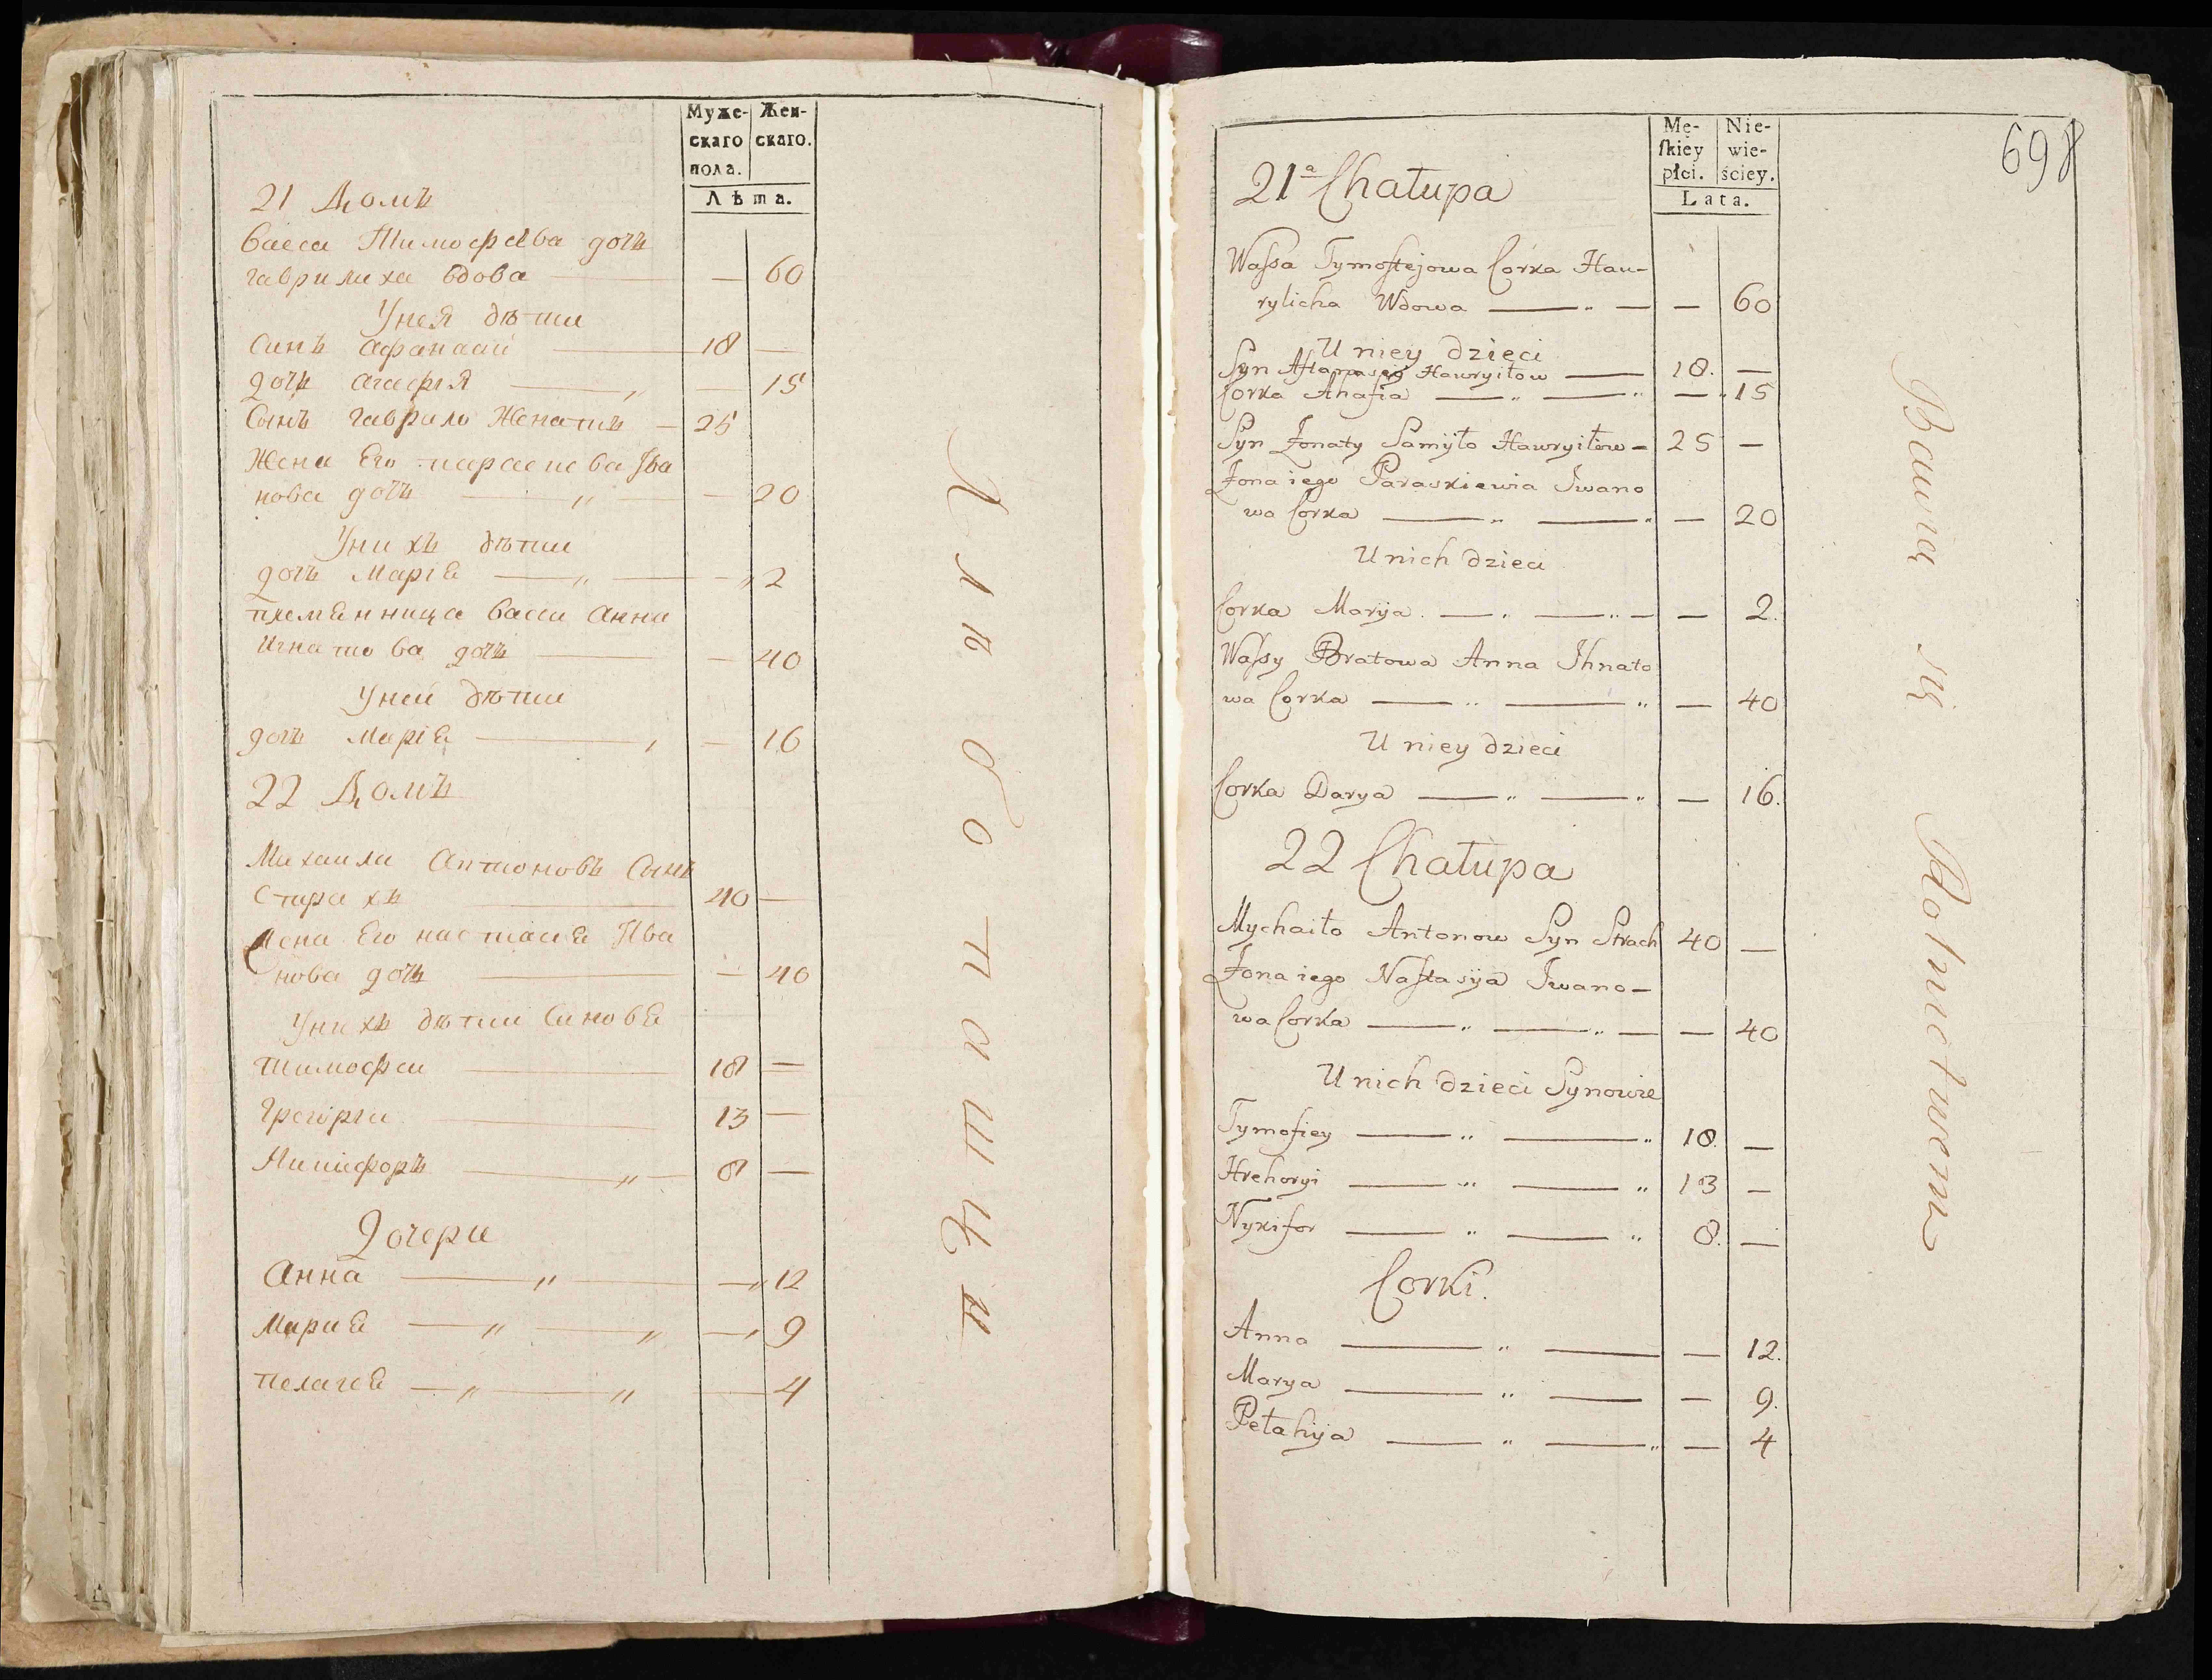 Муже-
скаго
пола.
Жен-
скаго.
Лѣта.
21 Домъ
Васса Тимофѣева дочь
гаврилиха вдова — — 60
Унея дѣти
Синъ Афанасий — 18 —
дочь агафія — „ 15
Сынъ гаврило Женатъ — 25
Жена Его параскева Ива
нова дочь — „ — — 20
Унихъ дѣти
дочь Маріѣ — „ — — „ 2
племѣнница Васси Анна
Игнатова дочь — — 40
Уней дѣти
дочь Маріѣ — , — 16
22 Домъ
Михаила Антоновъ Сынъ
Страхъ — 40 —
Жена Его настасіѣ Ива
нова дочь — — 40
Унихъ дѣти Синовѣ
Тимофеи — 18 —
Грегорги — 13 —
Никифоръ — „ — 8 —
Дочери
Анна — „ — — „ 12
Мариѣ — „ — „ — „ 9
Пелагеѣ — „ — „ — 4
Хлѣбопашцы
Mę-
ſkiey
płci.
Nie-
wie-
ściey.
Lata.
698
21a Chałupa
Waſsa Tymofiejowa Corka Hau-
rylicha Wdowa — „ — — 60
U niey dzieci
Syn Aftanasey Hawryiłow — 18. —
Corka Ahafia — „ — „ — „ 15
Syn Żonaty Samÿło Hawryiłow — 25 —
Żona iego Paraskiewia Iwano
wa Corka — „ — „ — 20
U nich dzieci
Corka Marÿa. — „ — „ — — 2.
Waſsy Bratowa Anna Ihnato
wa Corka — „ — „ — 40
U niey dzieci
Corka Darya — „ — „ — 16.
22 Chałupa
Mychaiło Antonow Syn Strach 40 —
Żona iego Naſtasÿa Iwano —
wa Corka — „ — „ — — 40
U nich dzieci Synowie
Tymofiey — „ — „ 18. —
Hrehoryi — „ — „ 13 —
Nykifor — „ — „ 8. —
Corki.
Anna — „ — — 12.
Marya — „ — — 9.
Pełahÿa — „ — „ — 4
Bawią się Rolnictwem